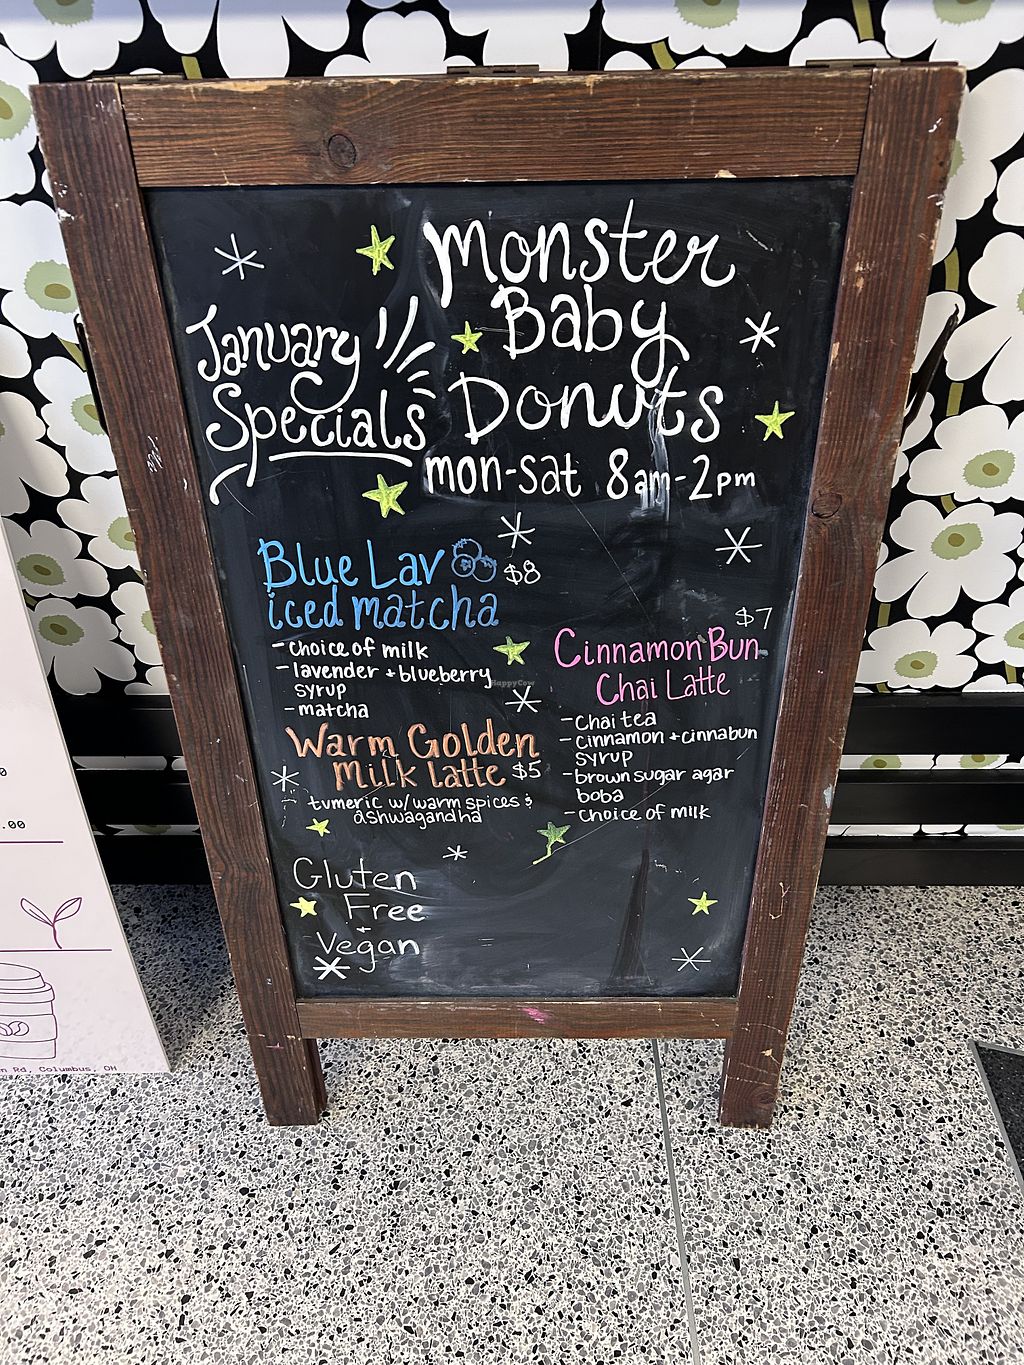 January
Specials
Monster
Baby
Donuts
mon-sat 8am-2pm
Blue Lav $8
iced matcha
- choice of milk
- lavender + blueberry
syrup
- matcha
Warm Golden
Milk latte $5
tumeric w/warm spices &
ashwagandha
$7
Cinnamon Bun
Chai Latte
- Chai tea
- cinnamon + cinnabun
syrup
- brown sugar agar
boba
- choice of milk
Gluten
Free
+
Vegan
HappyCow
.00
Rd, Columbus, OH